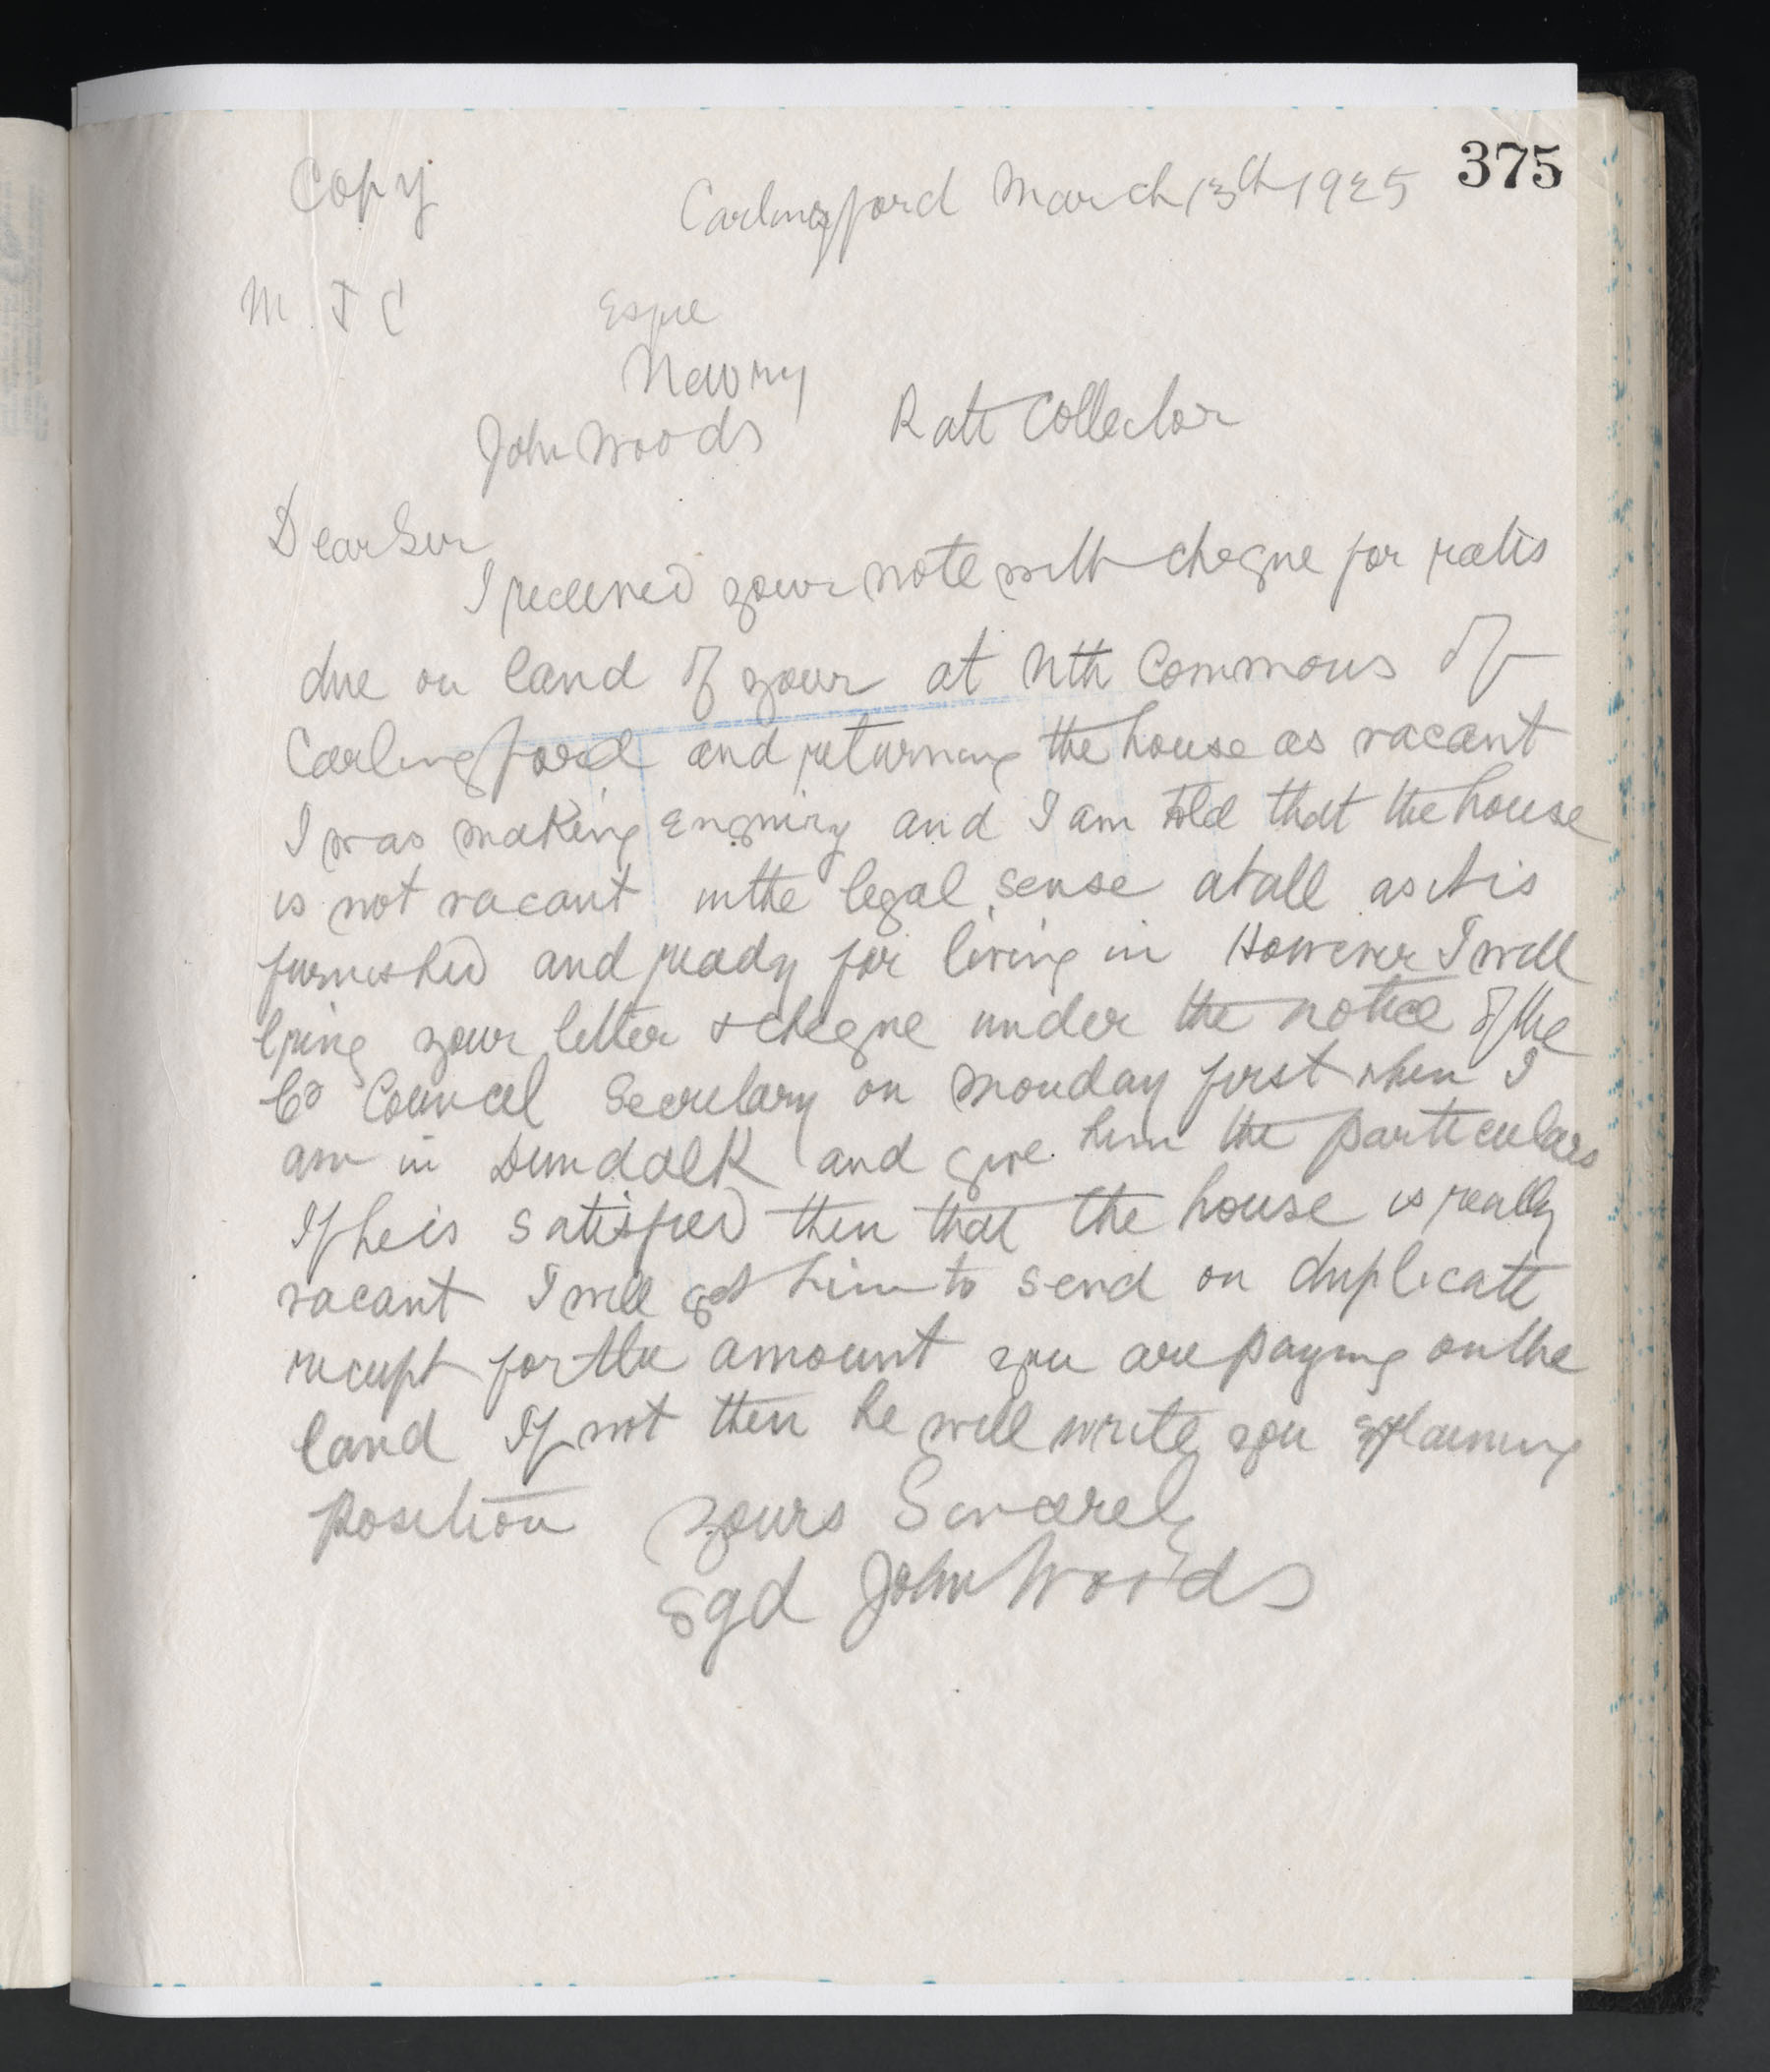 375
Copy Carlingford March 13th 1925
M. J C Esqre
Newry
John Woods Rate Collector
Dear Sir
I received your note with cheque for rates
due on land of your at Nth Commons of
Carlingford and returning the house as vacant
I was making enquiry and I am told that the house
is not vacant in the legal sense at all as it is
furnished and ready for living in However I will
bring your letter & cheque under the notice of the
Co Council Secretary on Monday first when I
am in Dundalk and give him the particulars
If he is satisfied then that the house is really
vacant I will get him to send on duplicate
receipt for the amount you are paying on the
land If not then he will write you explaining
position yours Sincerely
Sgd John Woods